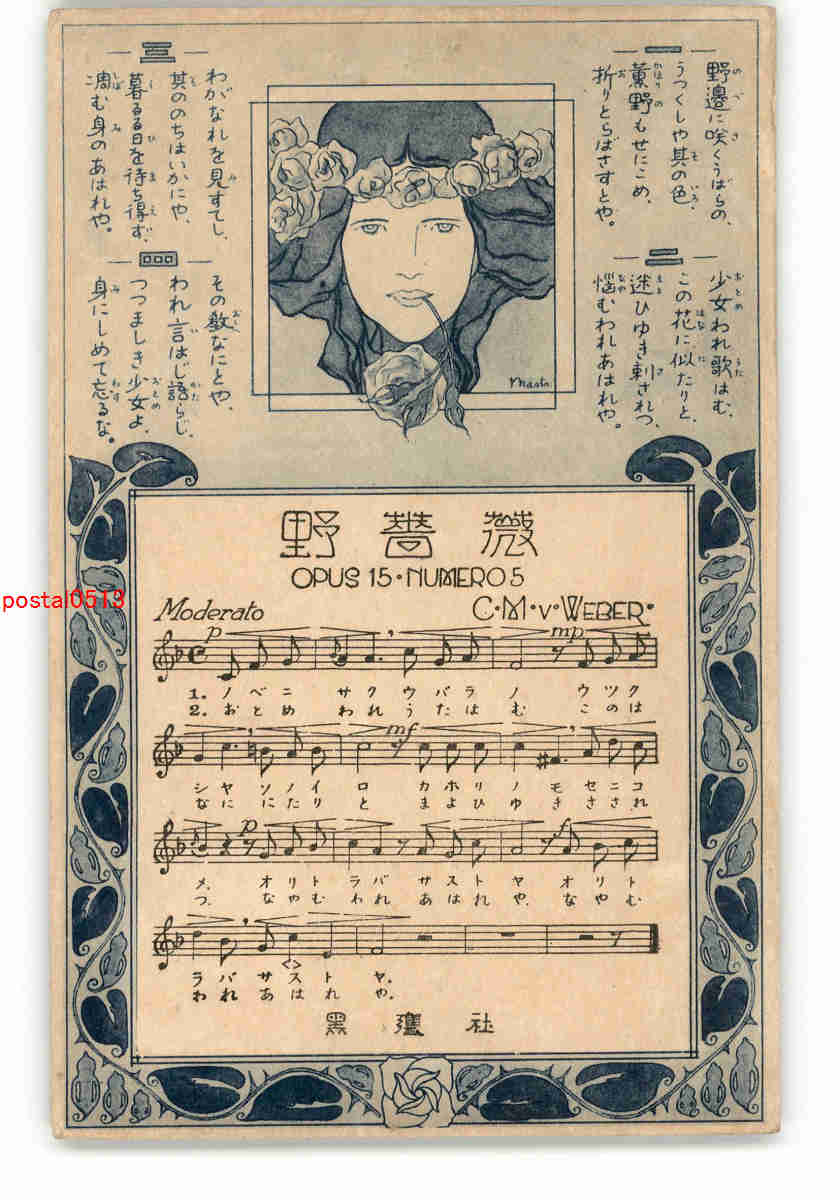 一
野邊に咲くうばらの、
うつくしや其の色、
薫野もせにこめ、
折りとらばさすとや。
二
少女われ歌はむ、
この花に似たりと、
迷ひゆき刺されつ、
悩むわれあはれや。
三
わがなれを見すてし、
其ののちはいかにや、
暮るる日を待ち得ず、
凋む身のあはれや。
四
その教なにとや、
われ言はじ語らじ、
つつましき少女よ、
身にしめて忘るな。
野薔薇
OPUS 15・NUMERO 5
Moderato
C・M・v・WEBER・
p mp
1. ノベニ サクウバラノ ウツク
2. おとめ われうたはむ このは
mf
シヤソノイロ カホリノモセニコ
なににたりと まよひゆきさされ
p f
メ、オリトラバサストヤ オリト
つ、なやむわれあはれや、なやむ
ラバサストヤ。
われあはれや。
postal0513